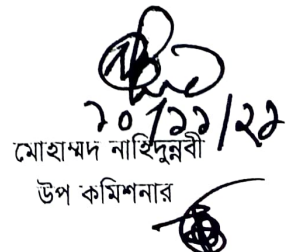 ২০/১১/২১
মোহাম্মদ নাহিদুন্নবী
উপ কমিশনার